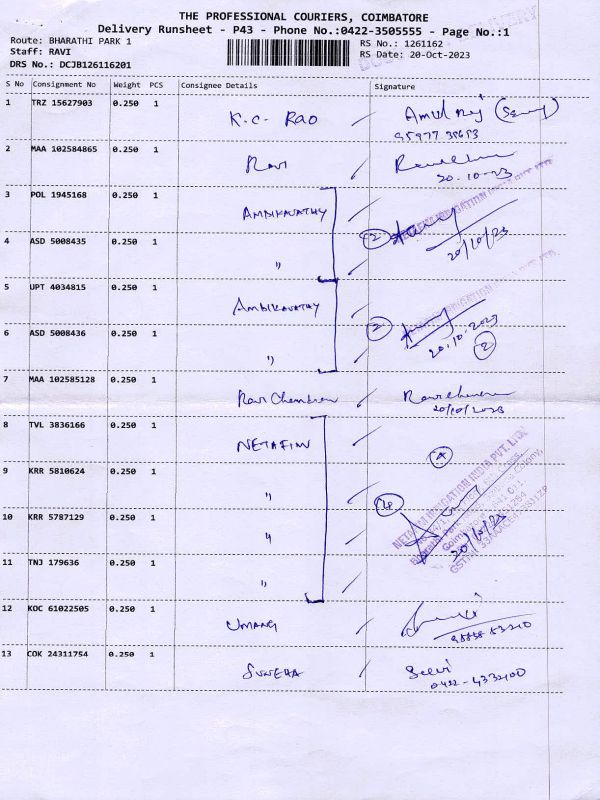 THE PROFESSIONAL COURIERS, COIMBATORE
Delivery Runsheet - P43 - Phone No.:0422-3505555 - Page No.:1
Route: BHARATHI PARK 1
RS No.: 1261162
Staff: RAVI
RS Date: 20-Oct-2023
DRS No.: DCJB126116201
S No Consignment No Weight PCS Consignee Details Signature
1 TRZ 15627903 0.250 1 K.C. RAO Amul
95977 35653
2 MAA 102584865 0.250 1 Ravi
20.10.23
3 POL 1945168 0.250 1 AMBIKAVATHY
4 ASD 5008435 0.250 1 " 2
20/10/23
5 UPT 4034815 0.250 1 AMBIKAVATHY
6 ASD 5008436 0.250 1 " 2
20.10.2023
2
7 MAA 102585128 0.250 1 Ravi Chandran Ravichandran
20/10/2023
8 TVL 3836166 0.250 1 NETAFIM
NETAFIM IRRIGATION INDIA PVT. LTD.
9 KRR 5810624 0.250 1 "
10 KRR 5787129 0.250 1 "
20/10/23
11 TNJ 179636 0.250 1 "
12 KOC 61022505 0.250 1 UMANG
13 COK 24311754 0.250 1 SUNEHA Selvi
0422-4332100